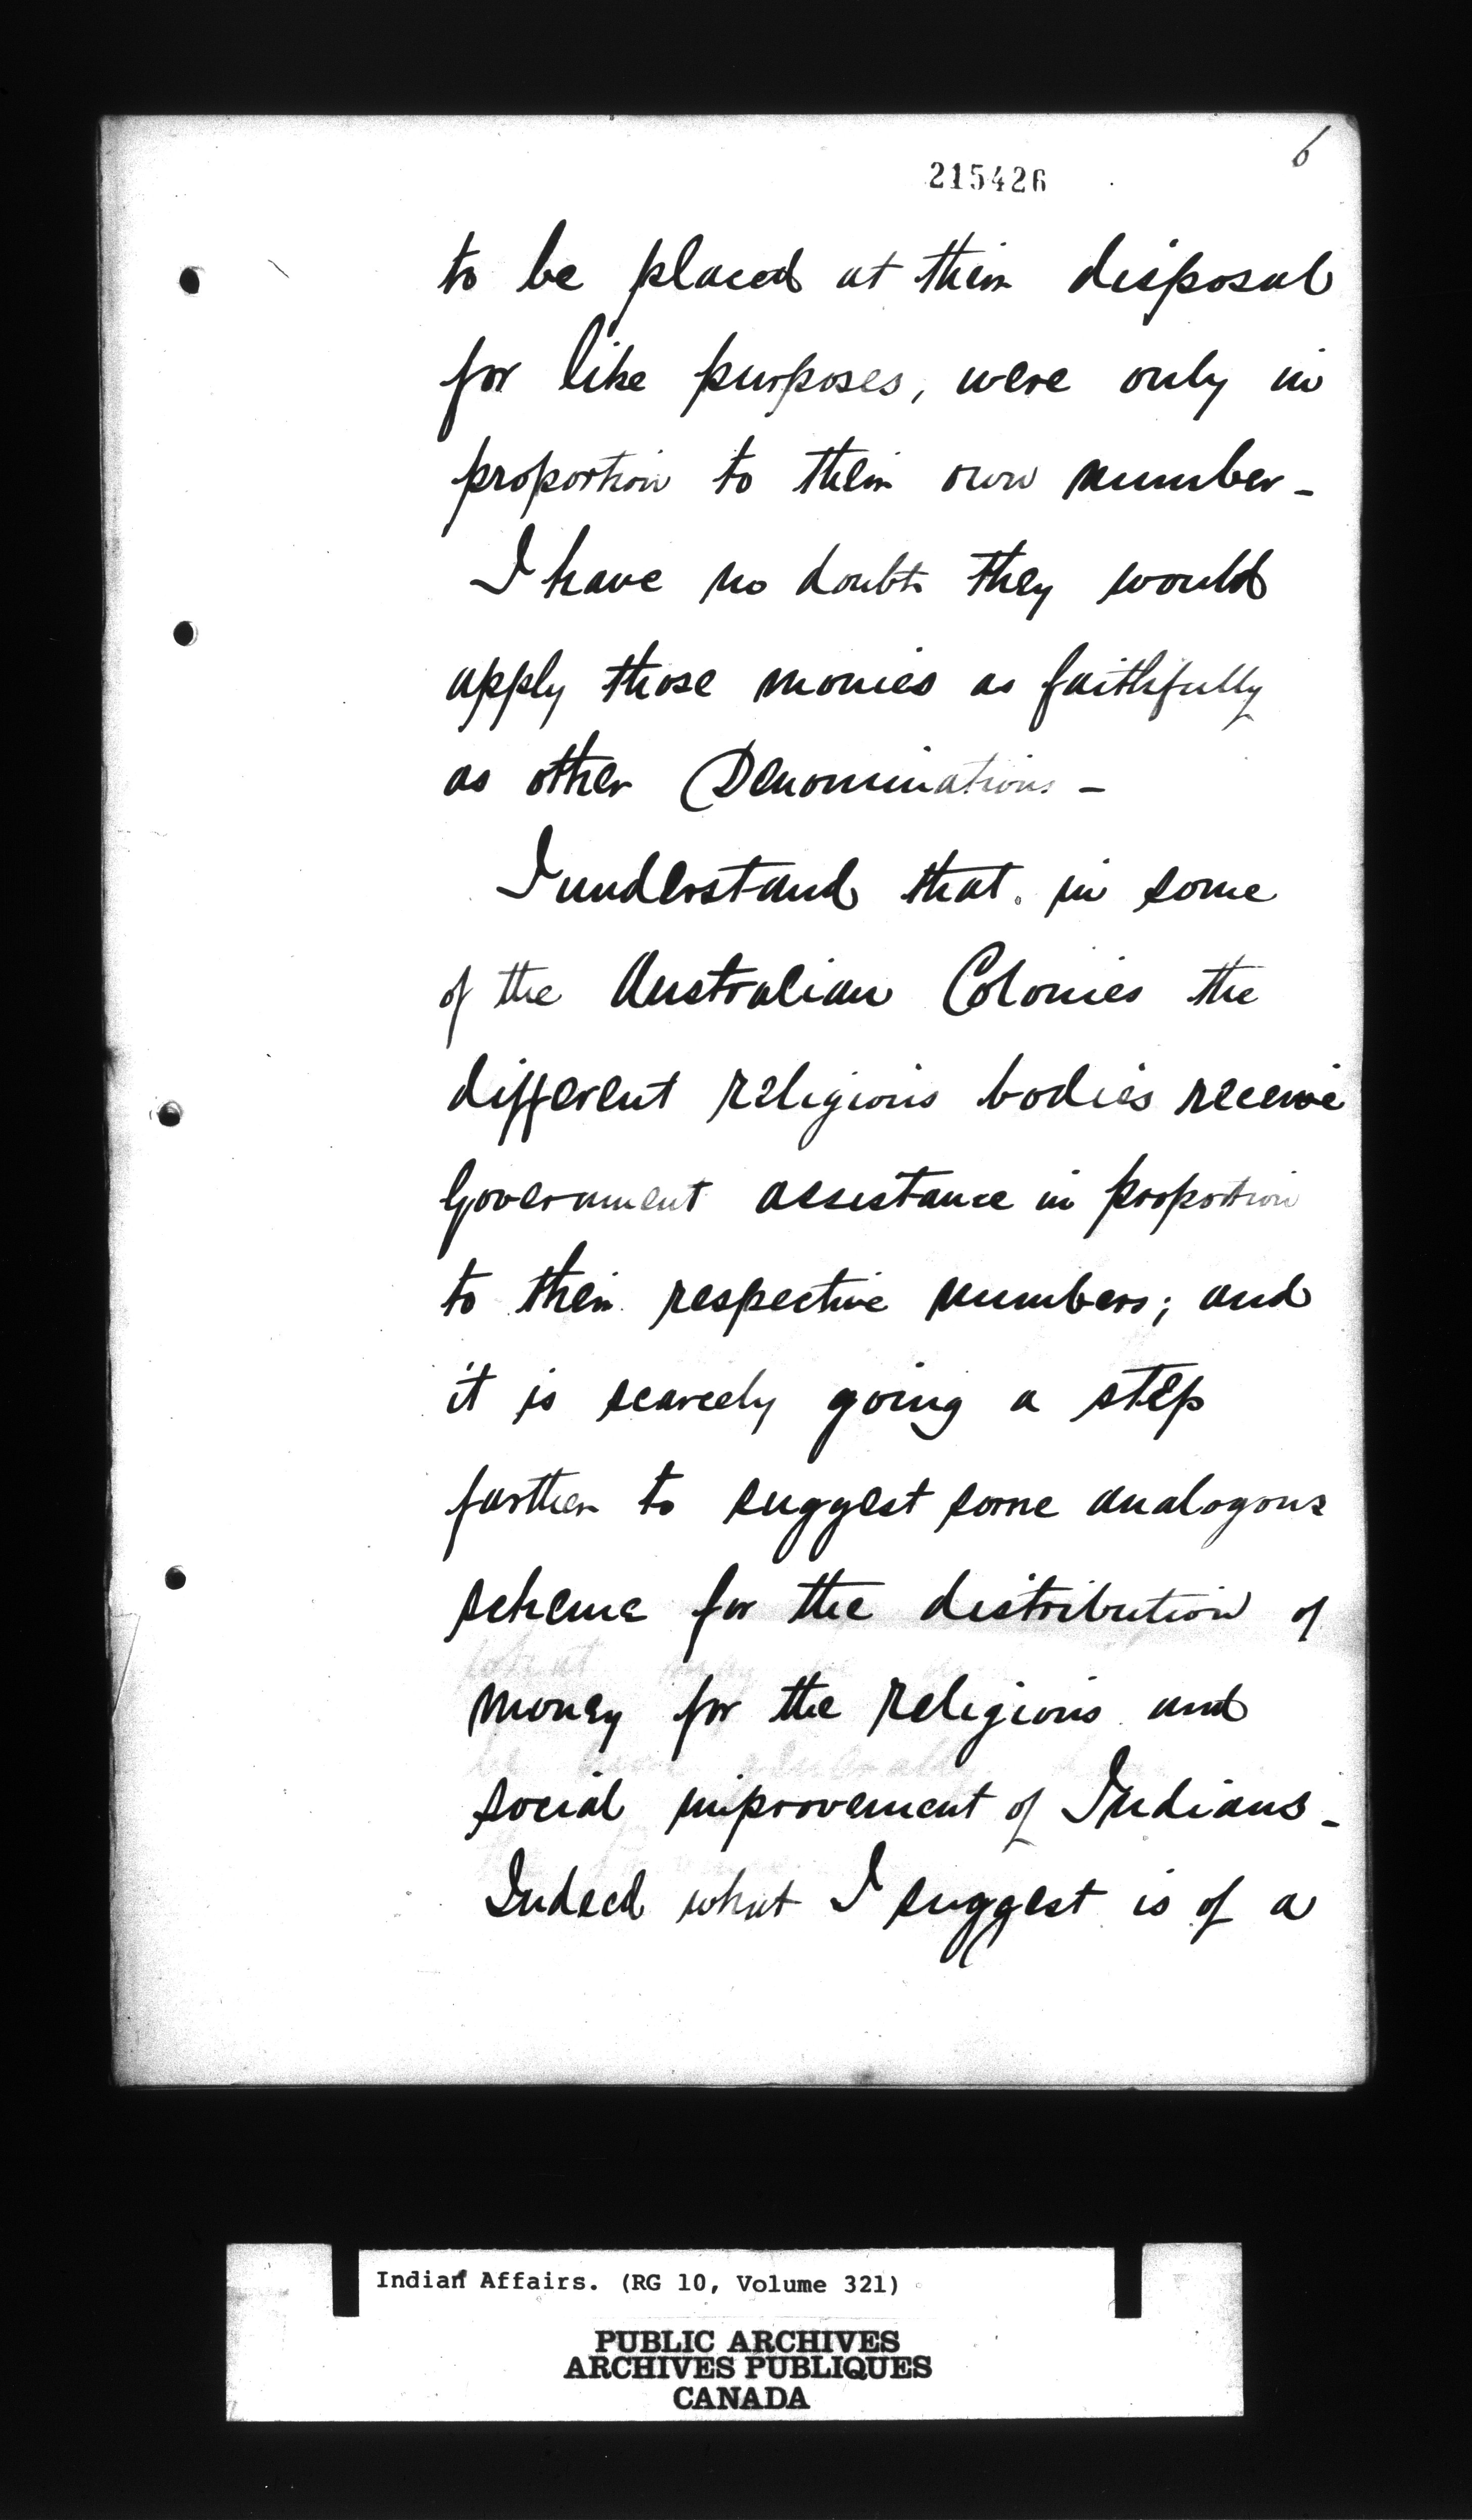 6
215426
to be placed at their disposal
for like purposes, were only in
proportion to their own number -
I have no doubt they would
apply those monies as faithfully
as other Denominations -
I understand that in some
of the Australian Colonies the
different religious bodies receive
Government assistance in proportion
to their respective numbers; and
it is scarcely going a step
further to suggest some analogous
scheme for the distribution of
money for the religious and
social improvement of Indians -
Indeed what I suggest is of a
Indian Affairs. (RG 10, Volume 321)
PUBLIC ARCHIVES
ARCHIVES PUBLIQUES
CANADA